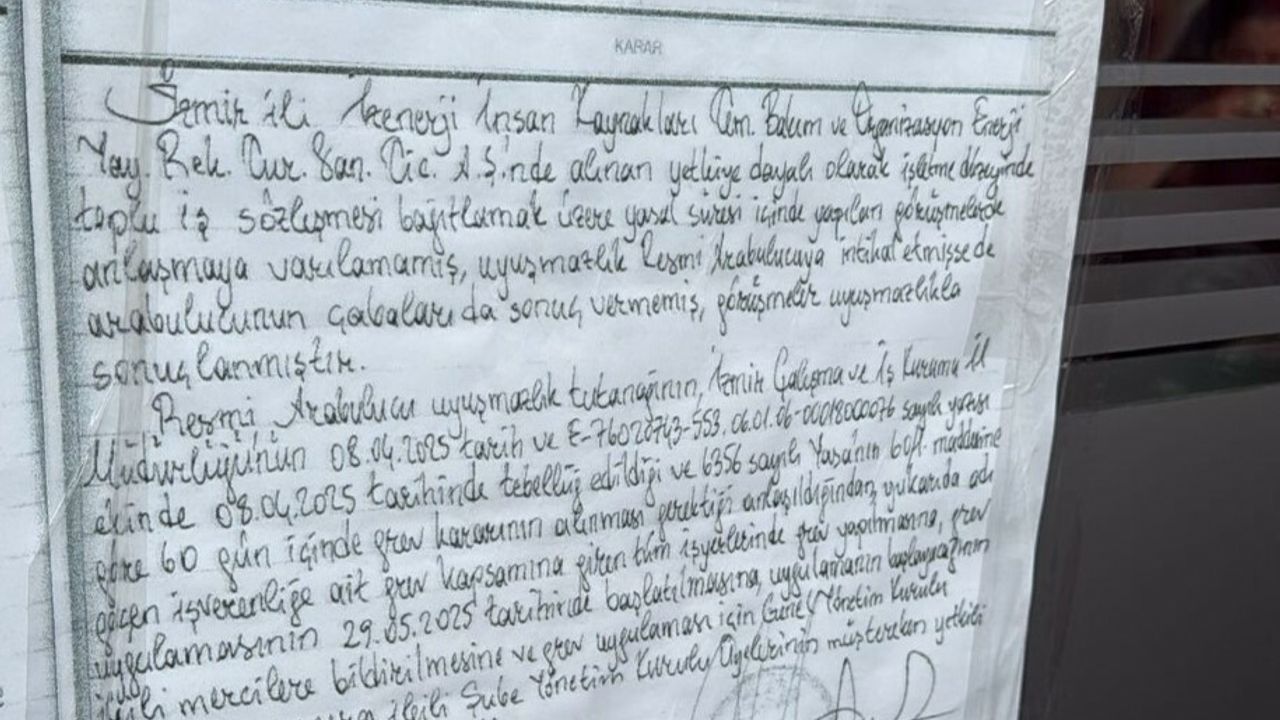 KARAR
İzmir ili İzenerji İnsan Kaynakları Tem. Bakım ve Organizasyon Enerji
Yay. Rek. Tur. San. Tic. A.Ş.'nde alınan yetkiye dayalı olarak işletme düzeyinde
toplu iş sözleşmesi bağıtlamak üzere yasal süresi içinde yapılan görüşmelerde
anlaşmaya varılamamış, uyuşmazlık Resmi Arabulucuya intikal etmişse de
arabulucunun çabaları da sonuç vermemiş, görüşmeler uyuşmazlıkla
sonuçlanmıştır.
Resmi Arabulucu uyuşmazlık tutanağının, İzmir Çalışma ve İş Kurumu İl
Müdürlüğünün 08.04.2025 tarih ve E-76020743-553.06.01.06-00018000076 sayılı yazısı
ekinde 08.04.2025 tarihinde tebellüğ edildiği ve 6356 sayılı Yasanın 60/1. maddesine
göre 60 gün içinde grev kararının alınması gerektiği anlaşıldığından, yukarıda adı
geçen işverenliğe ait grev kapsamına giren tüm işyerlerinde grev yapılmasına, grev
uygulamasının 29.05.2025 tarihinde başlatılmasına, uygulamanın başlayacağının
ilgili mercilere bildirilmesine ve grev uygulaması için Genel Yönetim Kurulu
ilgili Şube Yönetim Kurulu Üyelerinin müştereken yetkili